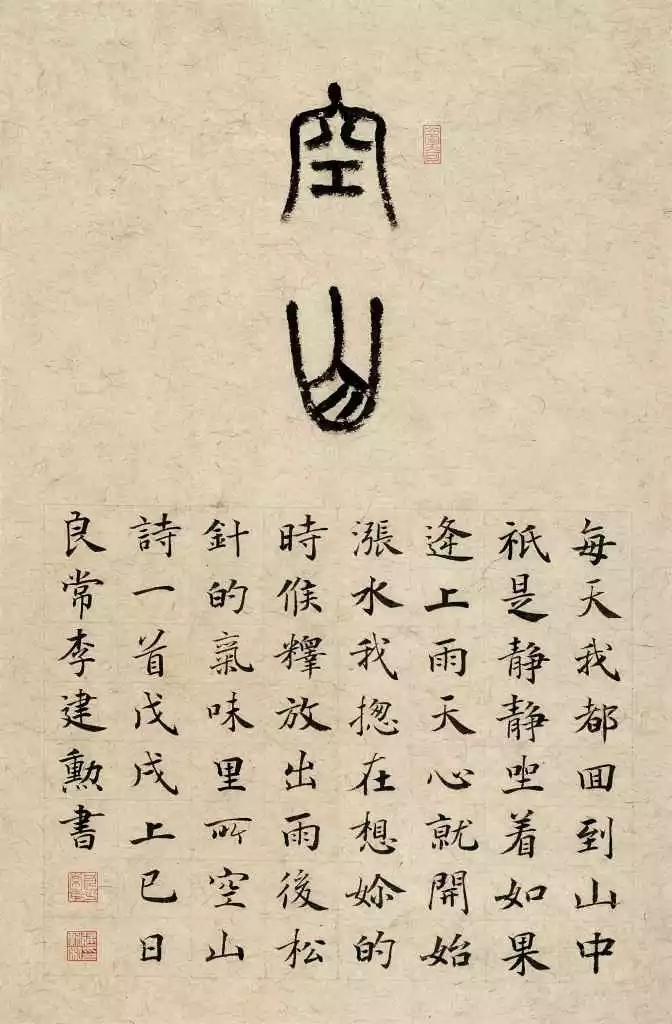 空山
每天我都囬到山中
祇是静静坐着如果
逢上雨天心就開始
漲水我揔在想妳的
時候釋放出雨後松
針的氣味里所空山
詩一首戊戌上巳日
良常李建勳書